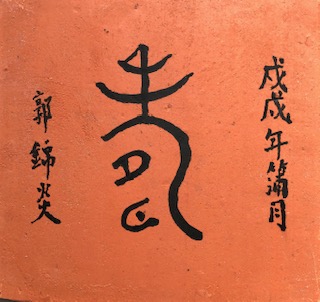 戊戌年蒲月
壽
郭錦炎